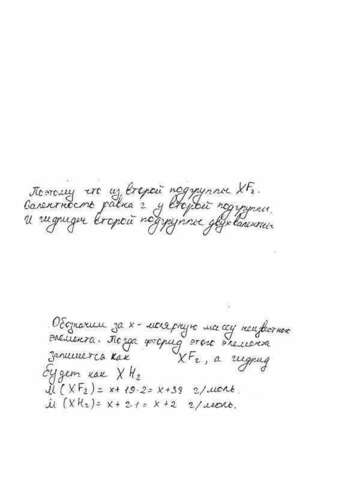 Поэтому что из второй подгруппы XF₂.
Валентность равна 2 у второй подгруппы.
И гидриды второй подгруппы двухвалентны
Обозначим за x - молярную массу неизвестного
элемента. Тогда фторид этого элемента
запишется как XF₂, а гидрид
будет как XH₂
M(XF₂) = x + 19·2 = x + 38 г/моль
M(XH₂) = x + 2·1 = x + 2 г/моль.